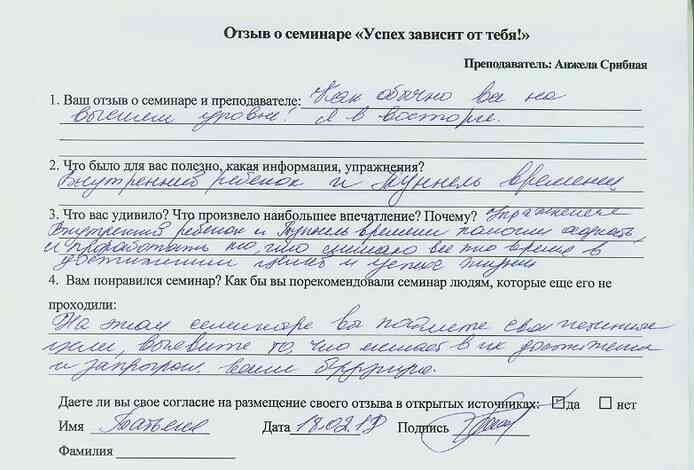 Отзыв о семинаре «Успех зависит от тебя!»
Преподаватель: Анжела Срибная
1. Ваш отзыв о семинаре и преподавателе: Как обычно вы на
высшем уровне! Я в восторге.
2. Что было для вас полезно, какая информация, упражнения?
Внутренний ребенок и Туннель времени
3. Что вас удивило? Что произвело наибольшее впечатление? Почему? Упражнения
Внутренний ребенок и Тунель времени помогли
и проработать то, что мешало все это время в
достижении целей и успехе жизни
4. Вам понравился семинар? Как бы вы порекомендовали семинар людям, которые еще его не
проходили:
На этом семинаре вы поймете свои истинные
цели, выявите то, что мешает в их достижении
и ваши
Даете ли вы свое согласие на размещение своего отзыва в открытых источниках: да нет
Имя Татьяна Дата 18.02.17 Подпись
Фамилия